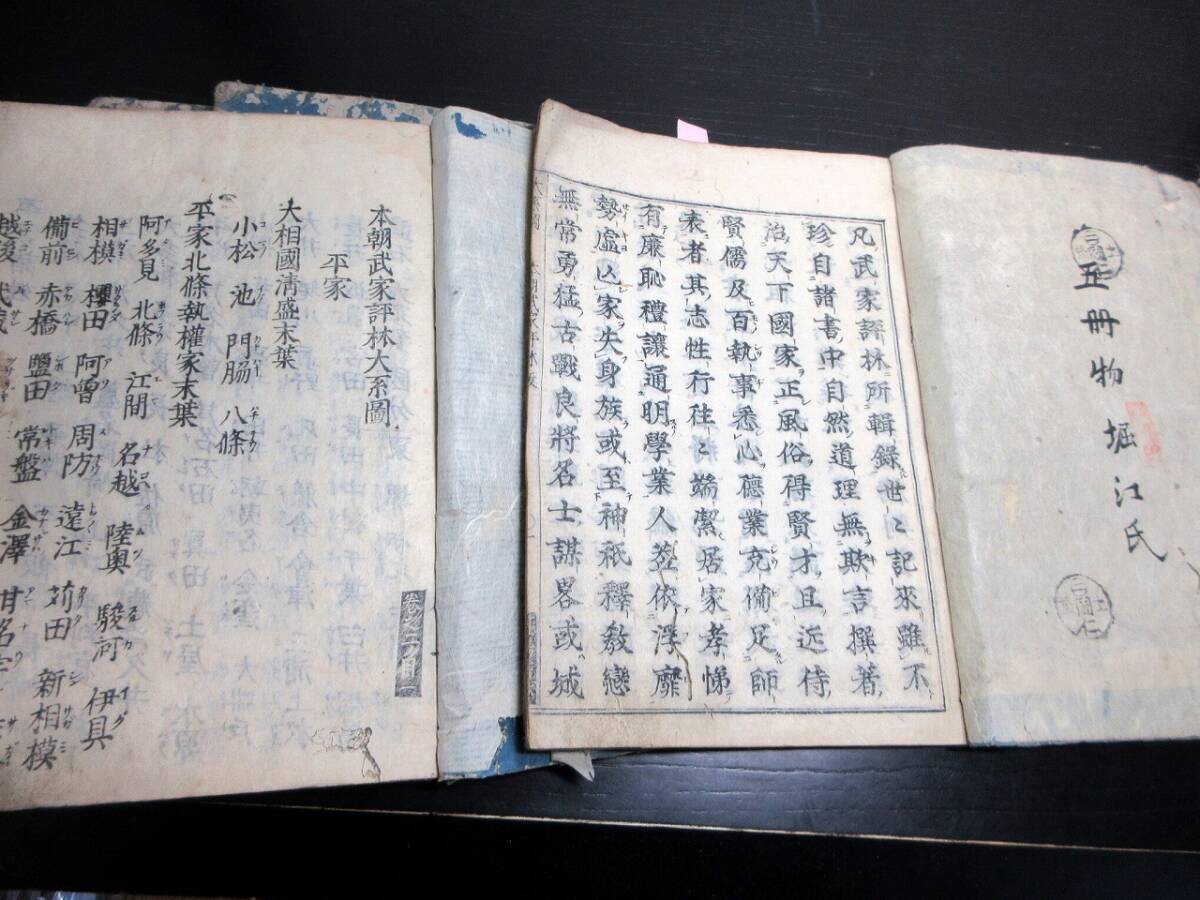 五冊物 堀江氏
凡武家評林所輯録世々記来雖不
珍自諸書中自然道理無欺言撰著
治天下國家正風俗得賢才且近侍
賢儒及百執事悉心德業充備足師
表者其志性行往々端潔居家孝悌
有廉恥禮讓通明學業人並依浮靡
勢虛凶家失身族或至神祇釋教戀
無常勇猛古戰良將名士謀畧或城
本朝武家評林大系圖
平家
大相國淸盛末葉
小松 池 門脇 八條
平家北條執權家末葉
阿多見 北條 江間 名越 陸奥 駿河 伊具
相模 櫻田 阿曽 周防 遠江 苅田 新相模
備前 赤橋 鹽田 常盤 金澤 甘名宇
越後